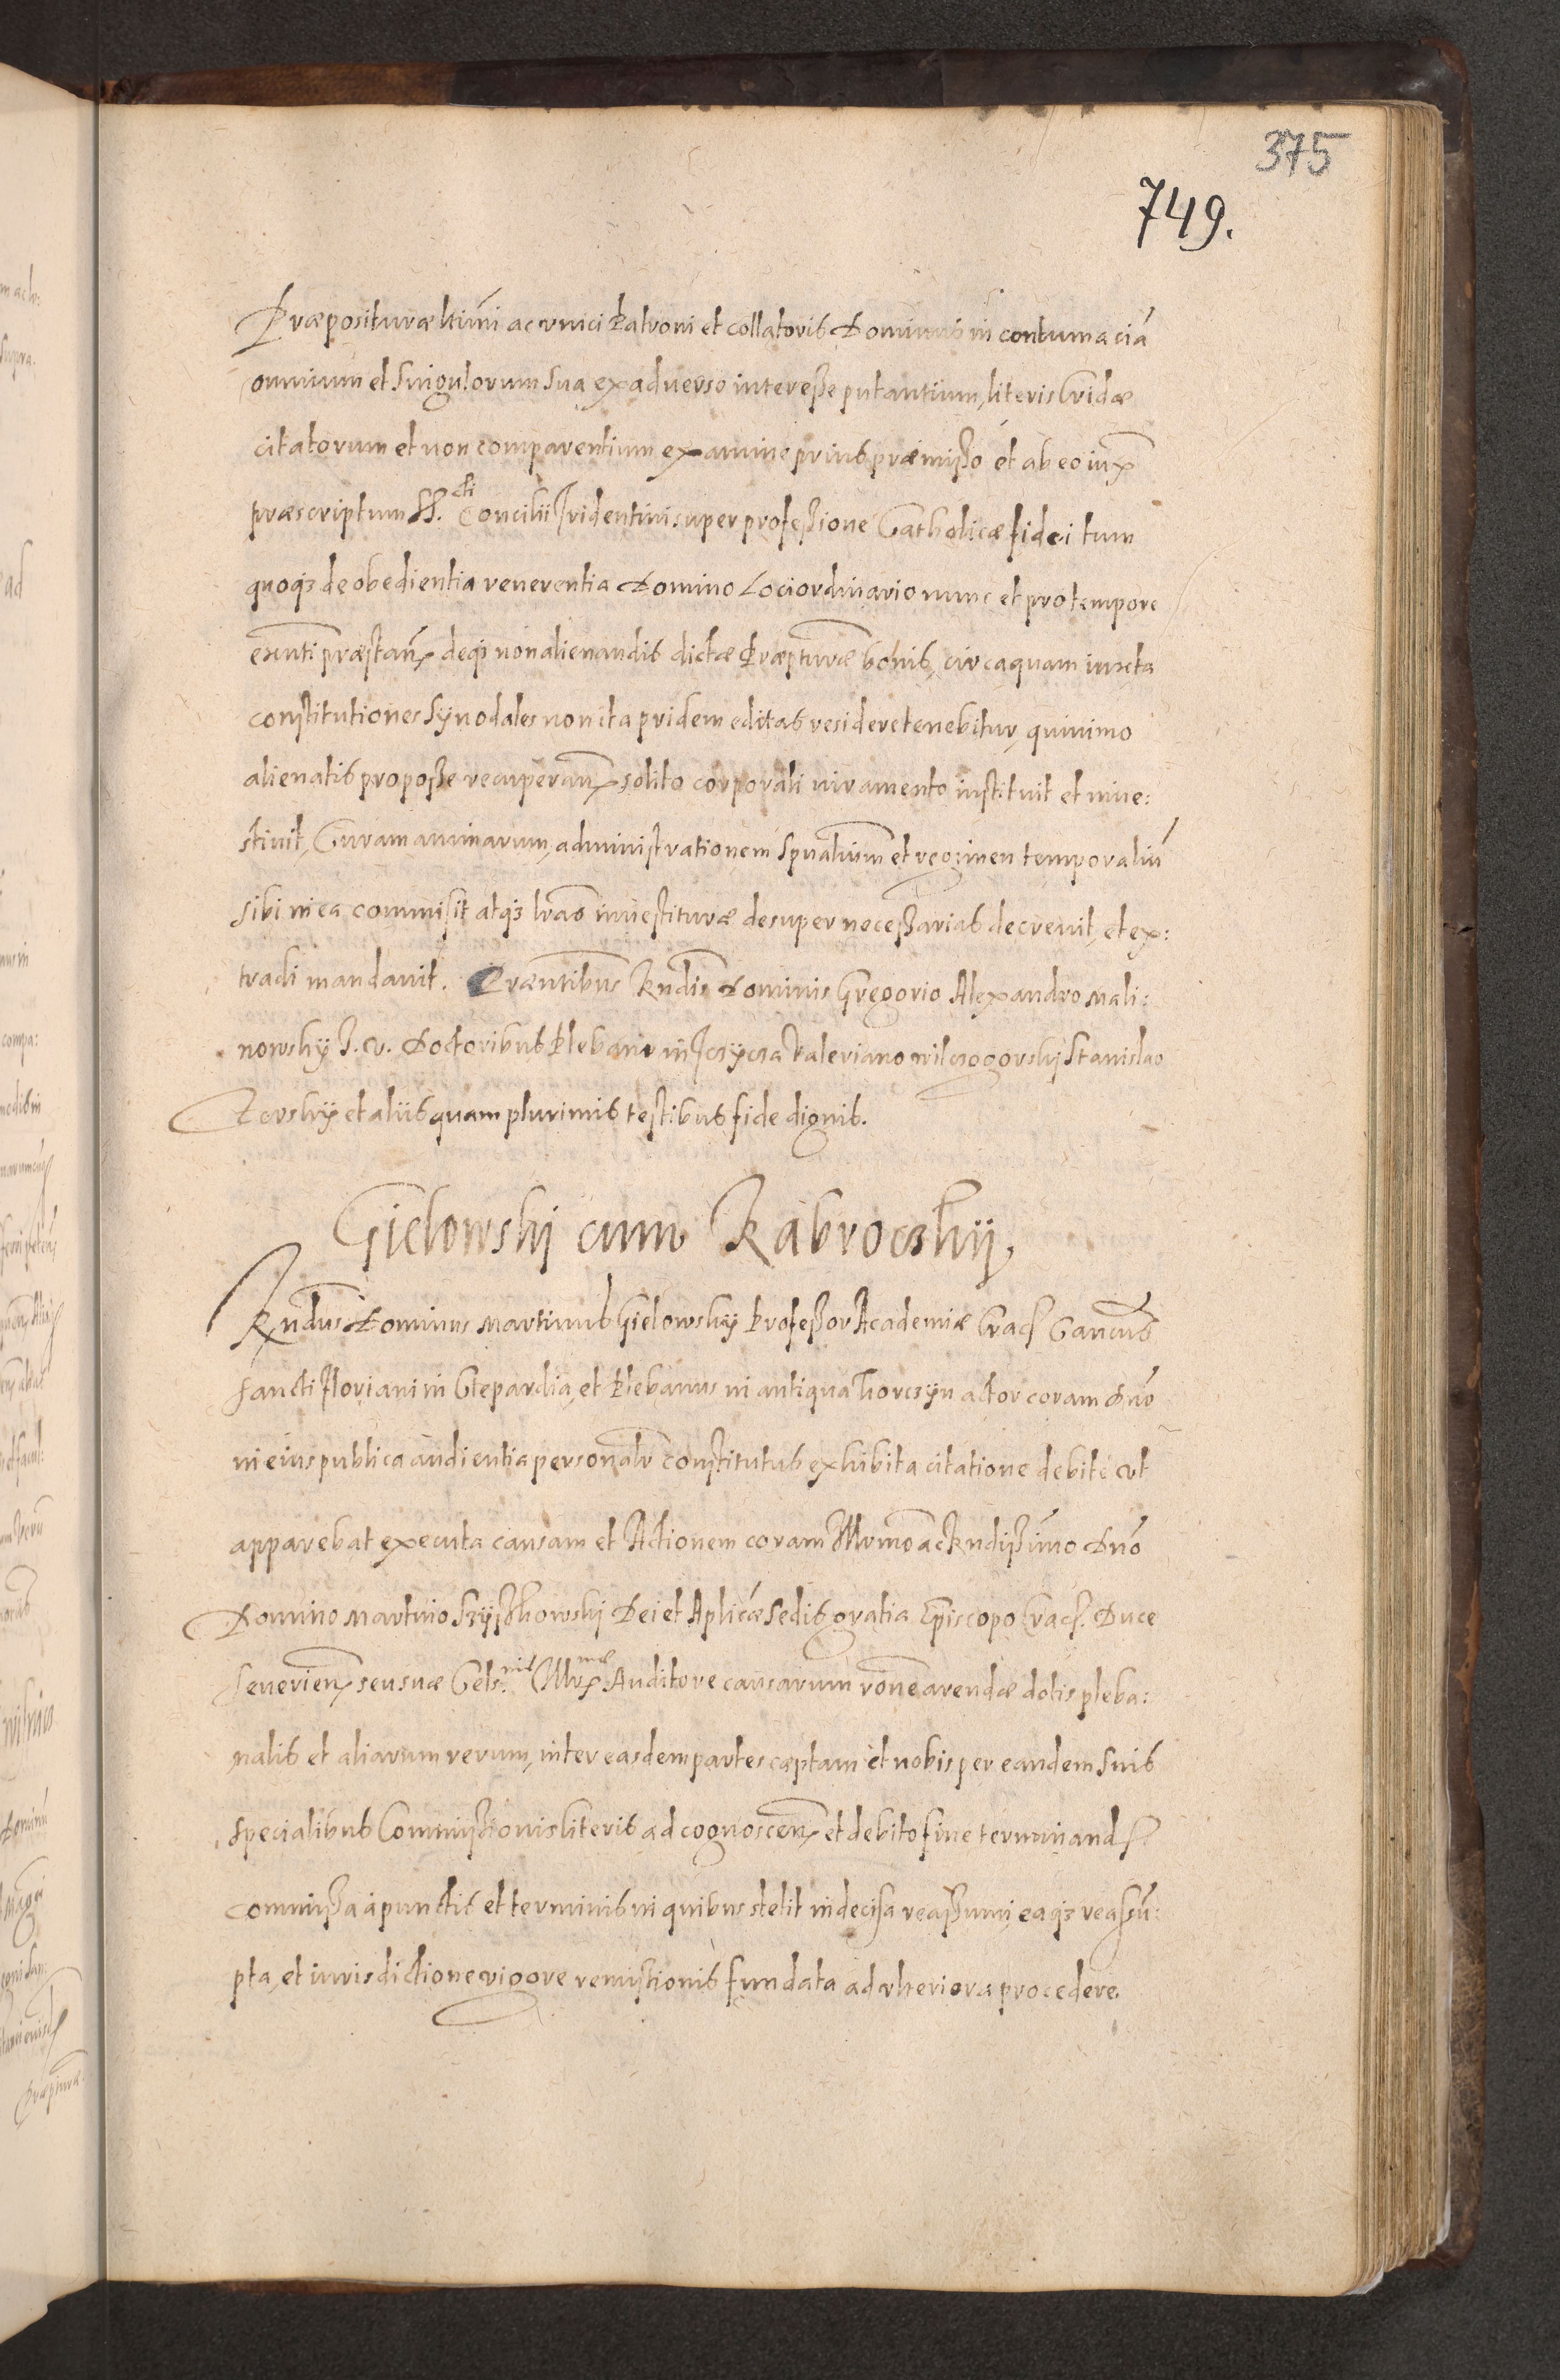 375
749.
Præposituræ ltimi ac vnici Patroni et collatoris Dominus in contumaciã
omnium et singulorum sua ex aduerso interesse putantium, literis Cridæ
citatorum et non comparentium examine prius præmisso et ab eo iux
præscriptum SS. cti Concilii Tridentini super professione Catholicæ fidei tum
quoq; de obedientia reuerentia Domino Lociordinario nunc et pro tempore
exnti præstan. deq; non alienandis dictæ Præpturæ bonis, circa quam iuxta
constitutiones Synodales non ita pridem editas residere tenebitur, quinimo
alienatis pro posse recuperan. solito corporali iuramento instituit et inue:
stiuit, Curam animarum, administrationem spualium et regimen temporaliũ
sibi in ea commisit atq; lras inuestituræ desuper necessarias decreuit, et ex:
tradi mandauit. Præntibus Rndis Dominis Gregorio Alexandro Mali:
nowsky J. V. Doctoribus Plebano in Valeriano Wilczogorskj Stanislao
Zorskÿ et aliis quam plurimis testibus fide dignis.
Gielowskj cum Kabroczkÿ.
Rndus Dominus Martinus Gielowskÿ Professor Academiæ Crac. Cancus
Sancti Floriani in Clepardia, et Plebanus in antiqua Thorczyn actor coram Dno
in eius publica audientia personalr constitutus exhibita citatione debite vt
apparebat executa causam et Actionem coram Illrmo ac Rndissimo Dno
Domino Martino Szÿszkowskj Dei et Aplicæ Sedis gratia Episcopo Crac. Duce
Seuerien. seu suæ Cels.nis Illr.mæ Auditore causarum rõne arendæ dotis pleba:
nalis et aliarum rerum, inter easdem partes cæptam et nobis per eandem suis
specialibus Commissionis literis ad cognoscen. et debito fine terminand.
commissa à punctis et terminis in quibus stetit indecisa reassumi, eaq; reassũ:
pta, et iurisdictione vigore remissionis fundata ad vlteriora procedere.